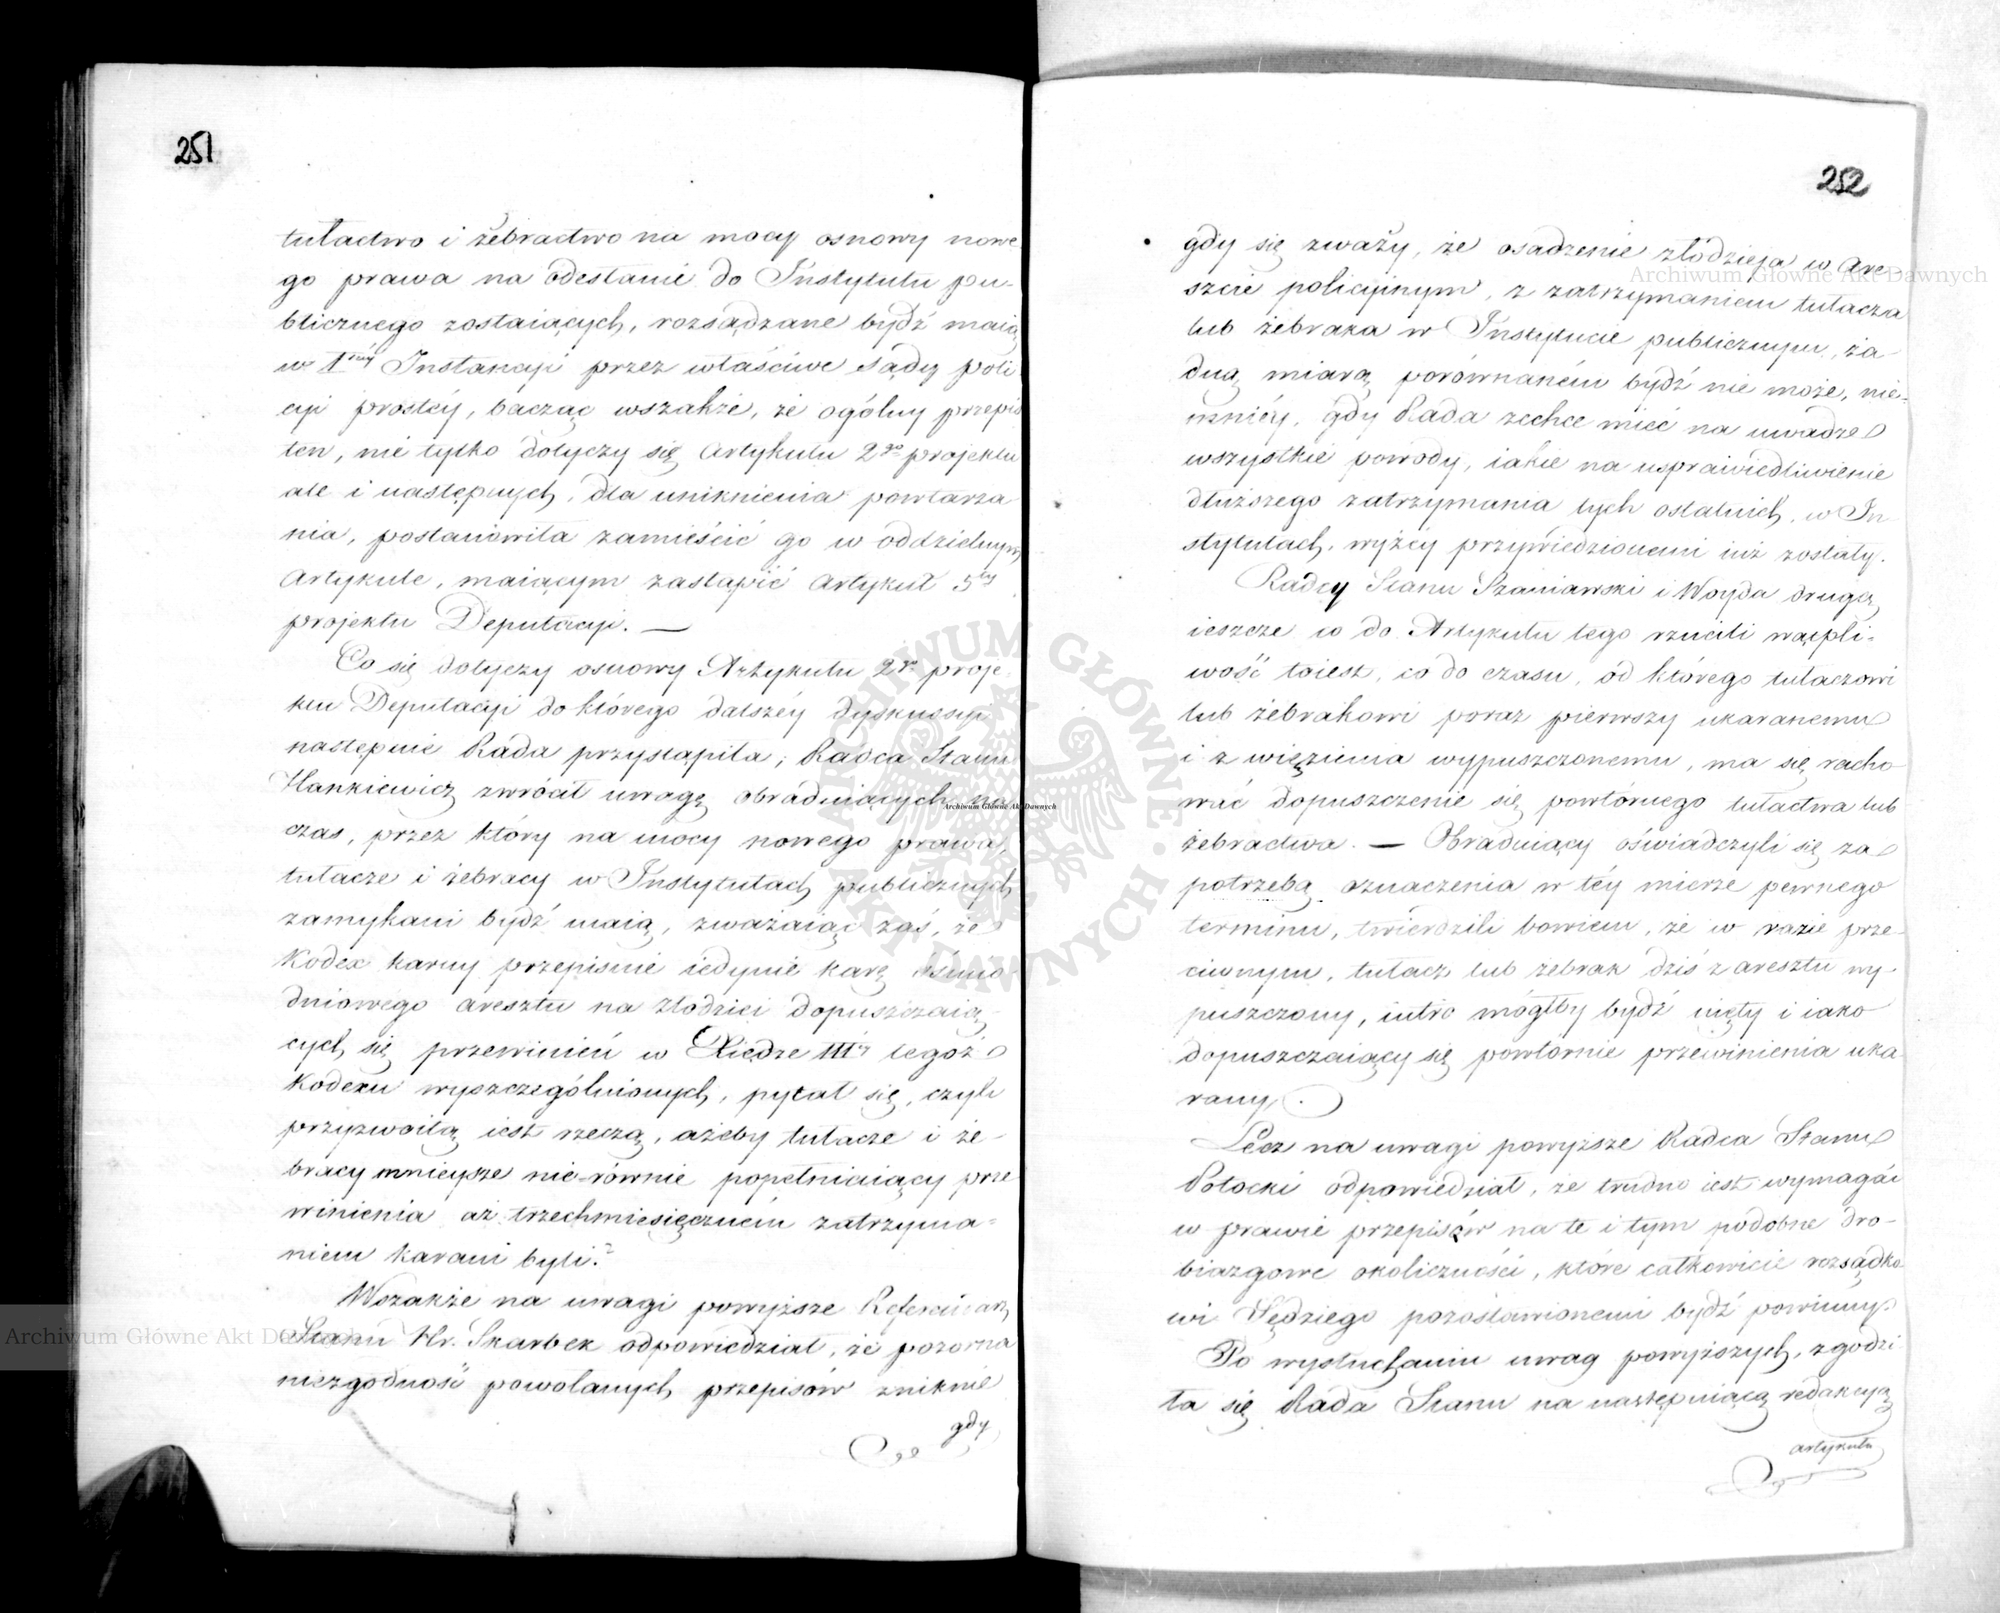 251
tułactwo i żebractwo na mocy osnowy nowe
go prawa na odesłanie do Instytutu pu-
blicznego zostaiących, rozsądzane bydź maią
w Iszéy Instancyi przez właściwe Sądy poli
cyi prostéy, bacząc wszakże, że ogólny przepis
ten, nie tylko dotyczy się Artykułu 2go projektu
ale i następnych, dla uniknienia powtarza
nia, postanowiła zamieścić go w oddzielnym
Artykule, maiącym zastąpić Artykuł 5ty
projektu Deputacyi. —
Co się dotyczy osnowy Artykułu 2go proje
ktu Deputacyi do którego dalszéy dyskussyi
następnie Rada przystąpiła; Radca Stanu
Hankiewicz zwrócił uwagę obraduiących na
czas, przez który na mocy nowego prawa,
tułacze i żebracy w Instytutach publicznych
zamykani bydź maią, zważaiąc zaś, że
Kodex karny przepisuie iedynie karę ośmio
dniowego aresztu na złodziei dopuszczaią
cych się przewinień w Xiędze IIIéy tegoż
Kodexu wyszczególnionych, pytał się, czyli
przyzwoitą iest rzeczą, ażeby tułacze i że-
bracy mnieysze nie-równie popełniaiący prze
winienia aż trzechmiesięczném zatrzyma-
niem karani byli?
Wszakże na uwagi powyższe Referendarz
Stanu Hr. Skarbek odpowiedział, że pozorna
niezgodność powołanych przepisów zniknie
gdy
252
gdy się zważy, że osadzenie złodzieja w are-
szcie policyinym, z zatrzymaniem tułacza
lub żebraka w Instytucie publicznym, ża-
dną miarą porównaném bydź nie może, nie-
mniéy, gdy Rada zechce mieć na uwadze
wszystkie powody, iakie na usprawiedliwienie
dłuższego zatrzymania tych ostatnich, w In
stytutach, wyżéy przywiedzionemi iuż zostały.
Radcy Stanu Szaniawski i Woyda drugą
ieszcze w do Artykułu tego rzucili wątpli-
wość toiest, co do czasu, od którego tułaczowi
lub żebrakowi poraz pierwszy ukaranemu
i z więzienia wypuszczonemu, ma się racho
wać dopuszczenie się powtórnego tułactwa lub
żebractwa. — Obraduiący oświadczyli się za
potrzebą oznaczenia w téy mierze pewnego
terminu, twierdzili bowiem, że w razie prze-
ciwnym, tułacz lub żebrak dziś z aresztu wy-
puszczony, iutro mógłby bydź uięty i iako
dopuszczaiący się powtórnie przewinienia uka
rany.
Lecz na uwagi powyższe Radca Stanu
Potocki odpowiedział, że trudno iest wymagać
w prawie przepisów na te i tym podobne dro-
biazgowe okoliczności, które całkowicie rozsądko
wi Sędziego pozostawionemi bydź powinny
Po wysłuchaniu uwag powyższych, zgodzi
ła się Rada Stanu na następuiącą redakcyą
artykułu
Archiwum Główne Akt Dawnych
Archiwum Główne Akt Dawnych
Archiwum Główne Akt Dawnych
ARCHIWUM GŁÓWNE AKT DAWNYCH